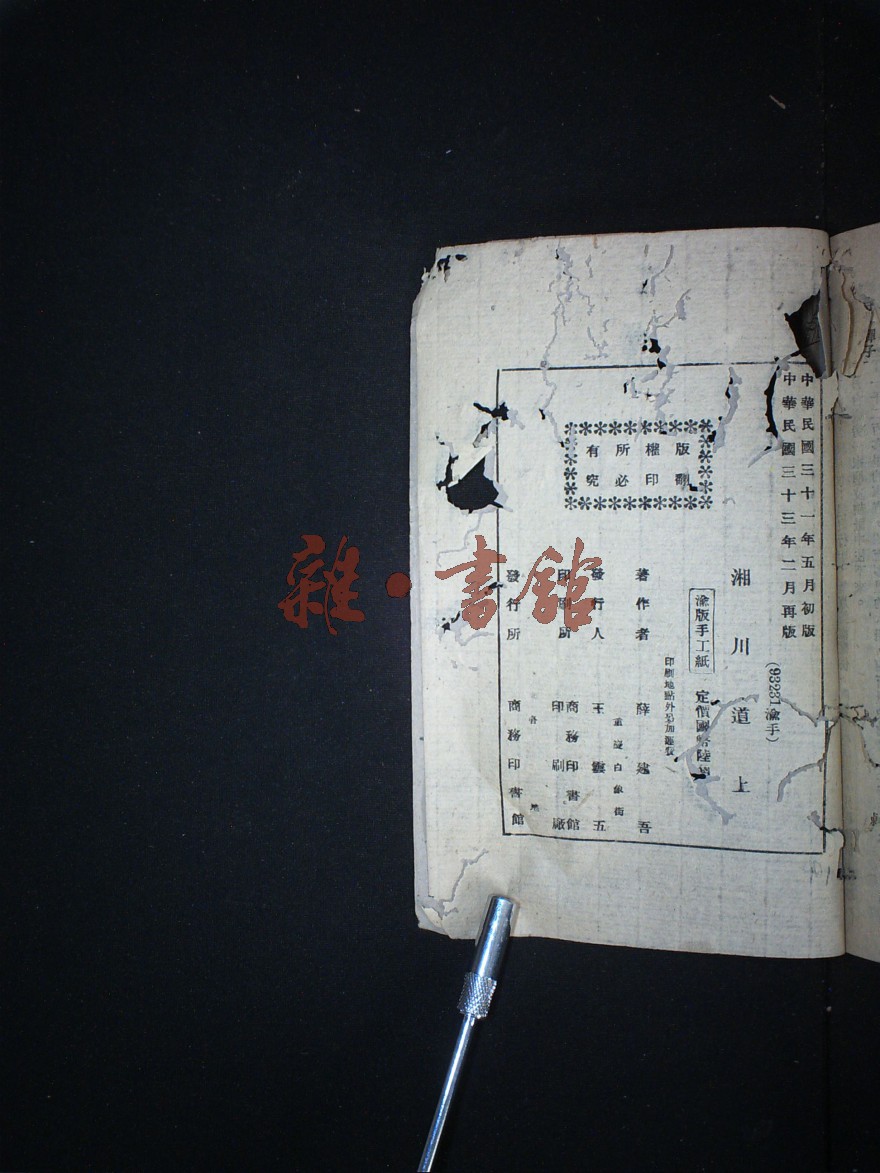 中華民國三十一年五月初版
中華民國三十三年二月再版
(93231 渝手)
湘川道上
渝版手工紙
定價國幣陸
印刷地點外另加運費
版權所有
翻印必究
著作者 薛建吾
重慶白象街
發行人 王雲五
印刷所 商務印書館
印刷廠
各地
發行所 商務印書館
雜·書館